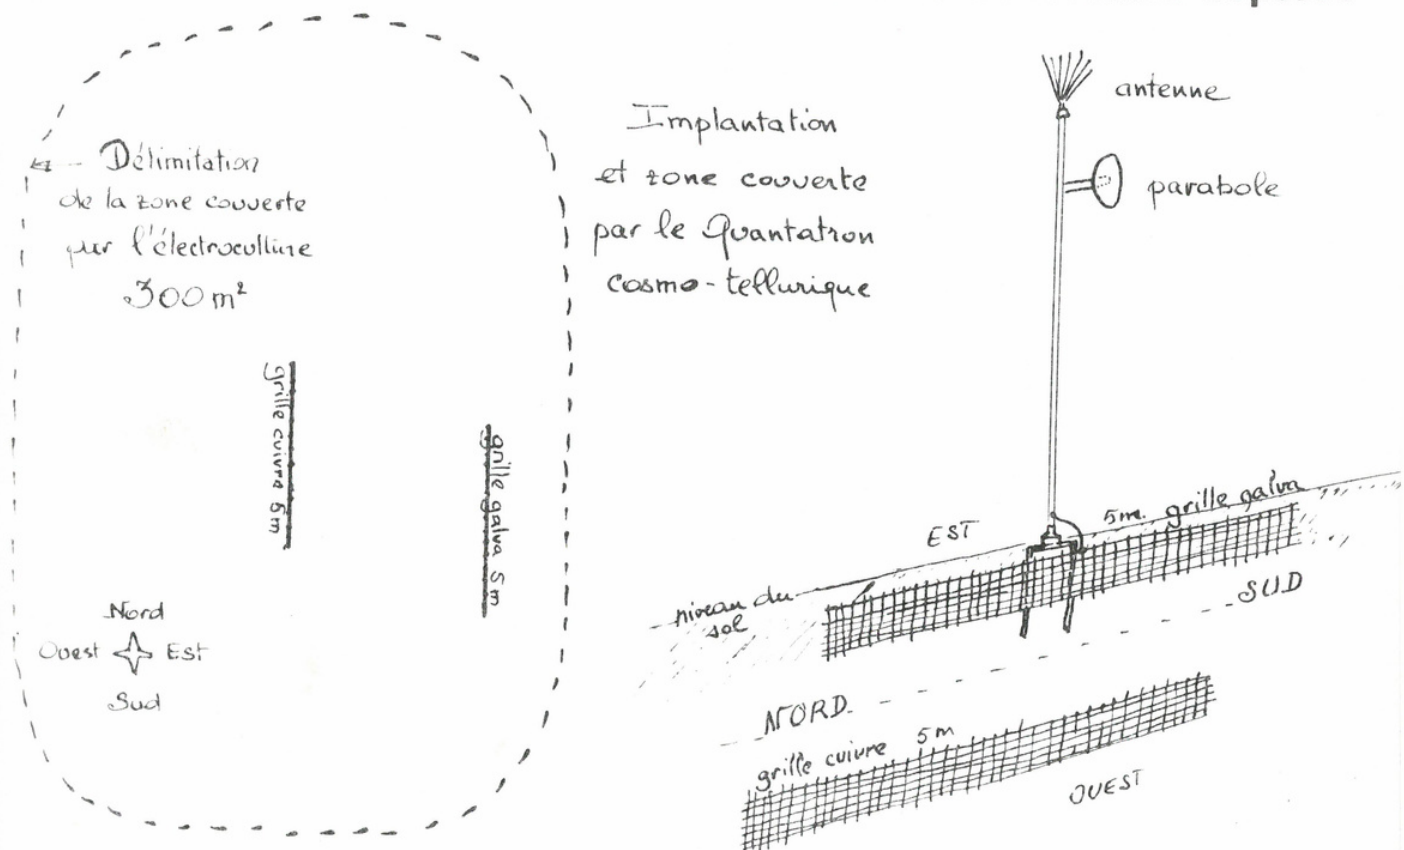 Délimitation
de la zone couverte
par l'électroculture
300 m²
grille cuivre 5m
grille galva 5m
Nord
Ouest Est
Sud
Implantation
et zone couverte
par le Quantatron
cosmo-tellurique
antenne
parabole
EST
5m. grille galva
niveau du
sol
SUD
NORD
grille cuivre 5m
OUEST